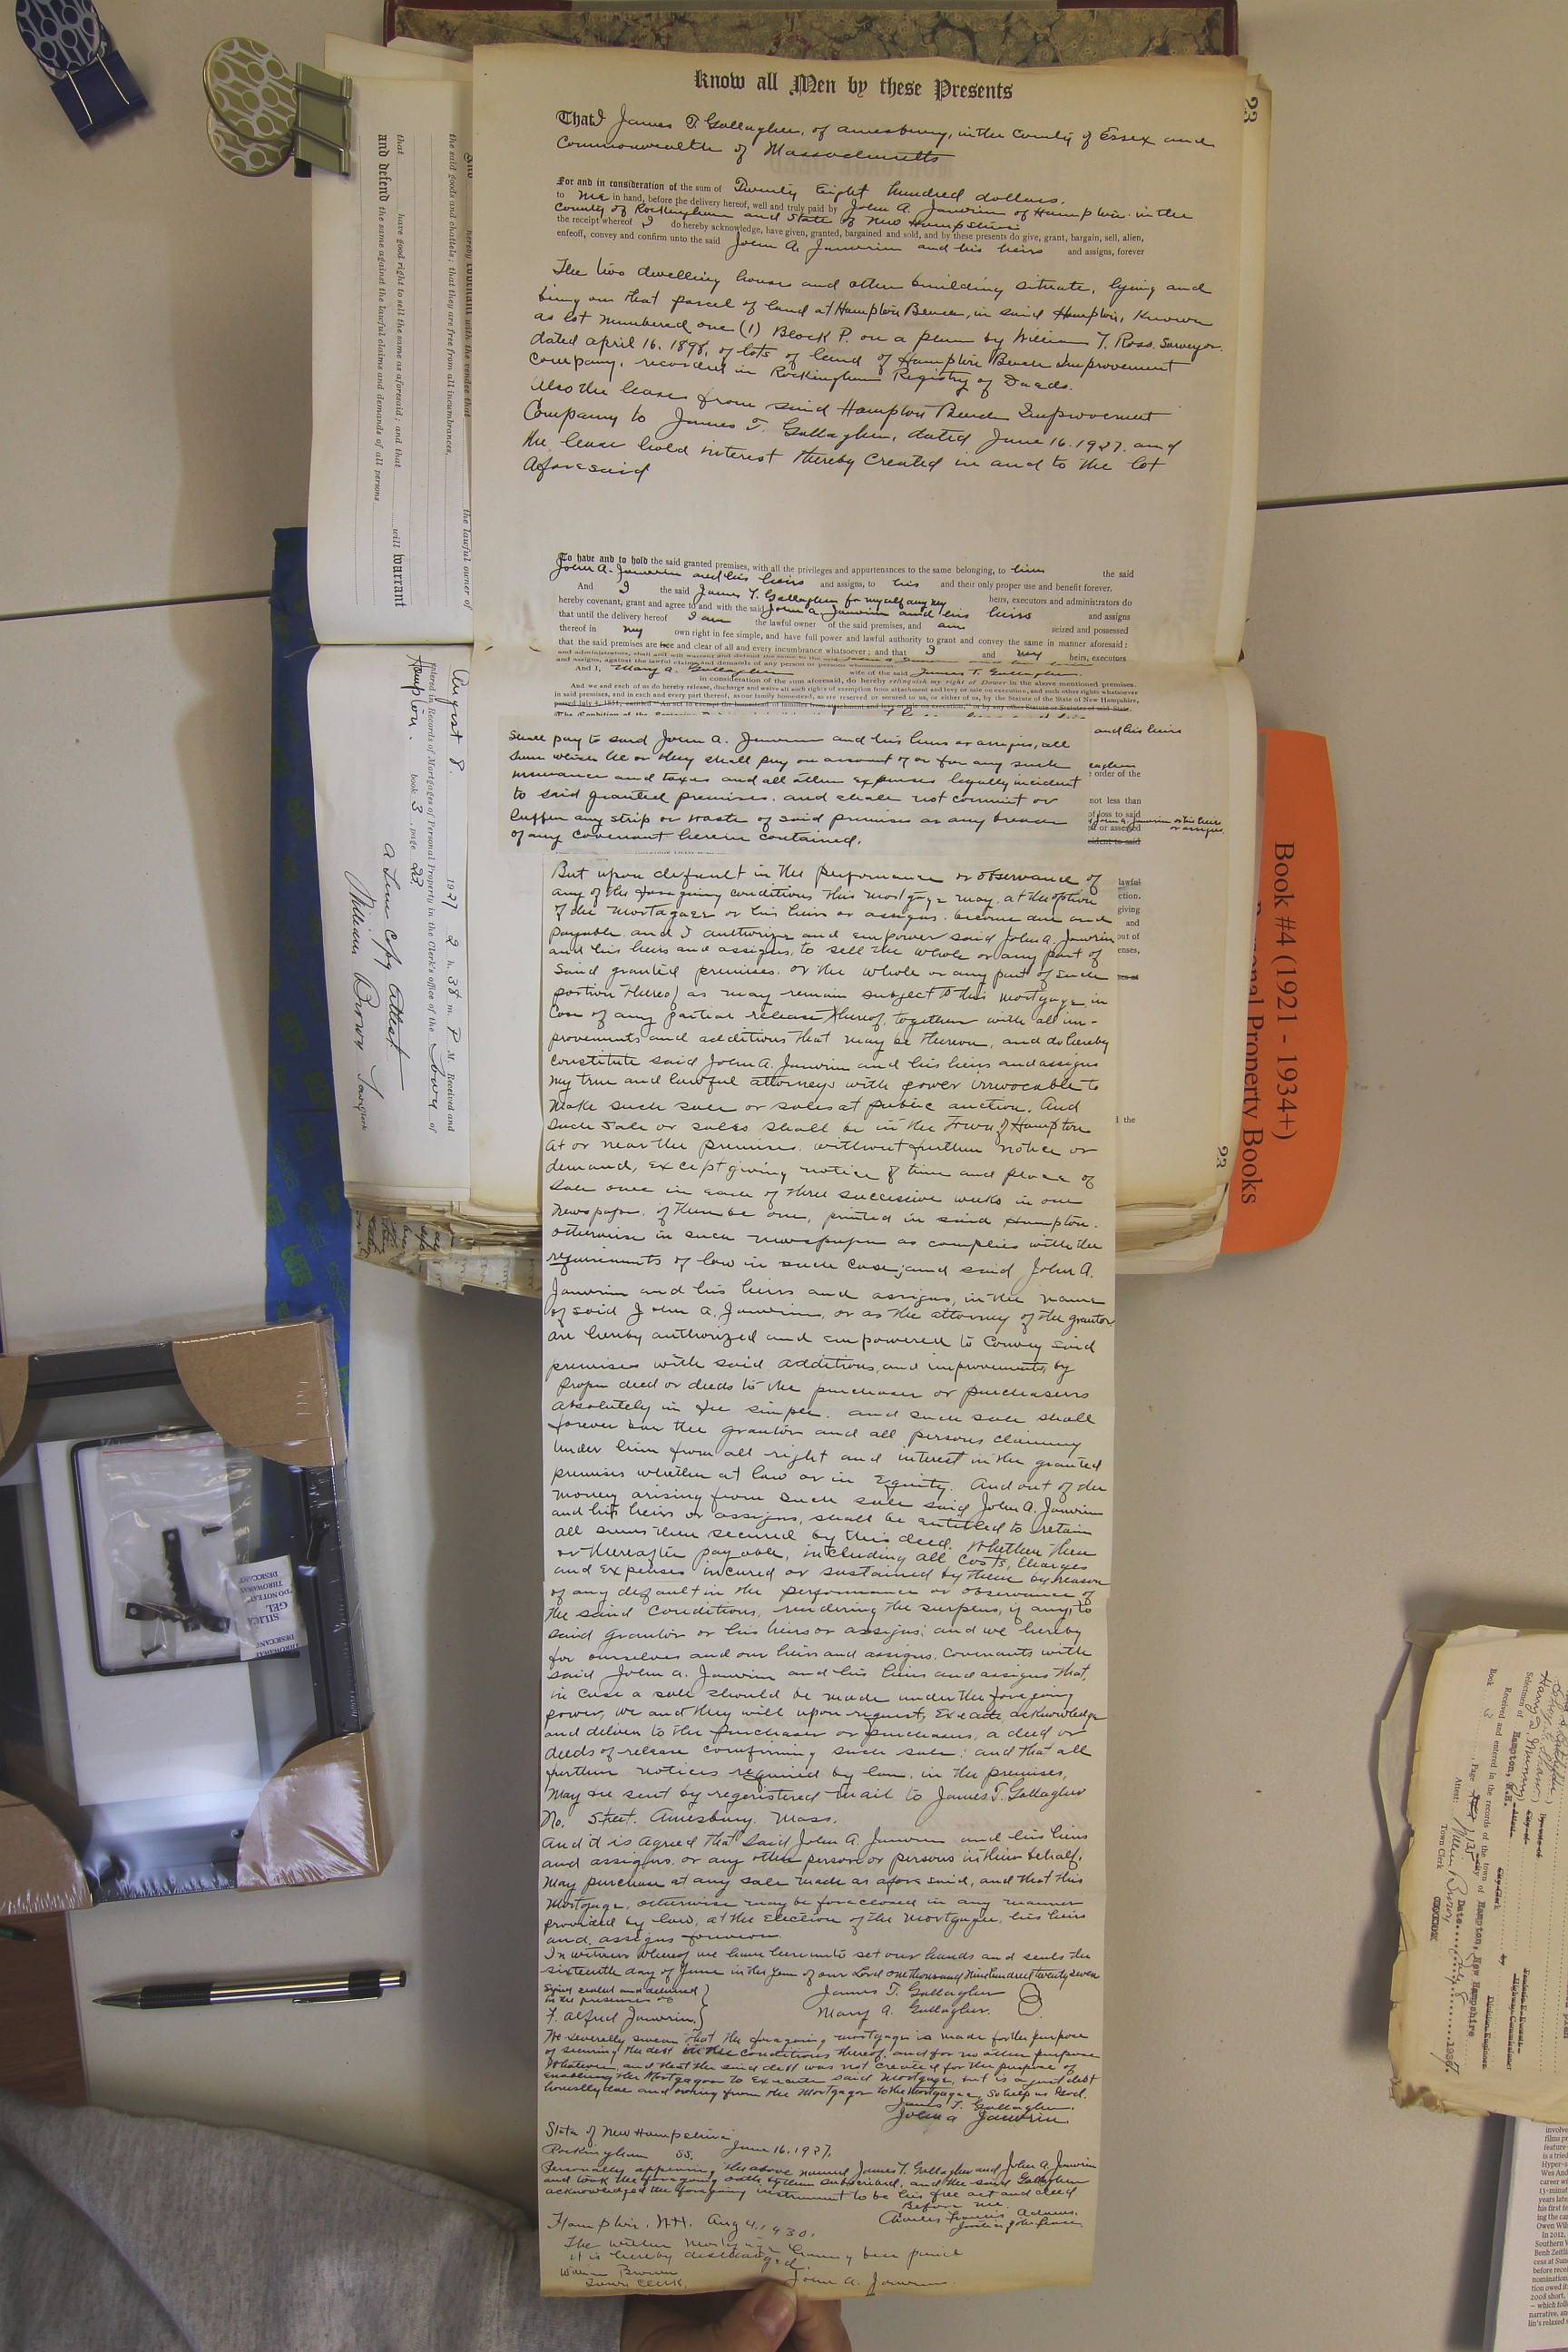 Know all Men by these Presents
That I James T. Gallagher, of Amesbury, in the County of Essex and
Commonwealth of Massachusetts
For and in consideration of the sum of Twenty Eight hundred dollars.
to me in hand, before the delivery hereof, well and truly paid by John A. Janvrin of Hampton in the
County of Rockingham and State of New Hampshire
the receipt whereof I do hereby acknowledge, have given, granted, bargained and sold, and by these presents do give, grant, bargain, sell, alien,
enfeoff, convey and confirm unto the said John A. Janvrin and his heirs and assigns, forever
The two dwelling houses and other building situate, lying and
being on that parcel of land at Hampton Beach, in said Hampton, Known
as lot numbered one (1) Block P. on a plan by William T. Ross, Surveyor
dated april 16. 1898, of lots of land of Hampton Beach Improvement
Company, recorded in Rockingham Registry of Deeds.
Also the lease from said Hampton Beach Improvement
Company to James T. Gallagher, dated June 16. 1927. and
the lease hold interest thereby created in and to the lot
aforesaid
To have and to hold the said granted premises, with all the privileges and appurtenances to the same belonging, to him the said
John A. Janvrin and his heirs and assigns, to his and their only proper use and benefit forever.
And I the said James T. Gallagher for myself any my heirs, executors and administrators do
hereby covenant, grant and agree to and with the said John A. Janvrin and his heirs and assigns
that until the delivery hereof I am the lawful owner of the said premises, and am seized and possessed
thereof in my own right in fee simple, and have full power and lawful authority to grant and convey the same in manner aforesaid:
that the said premises are free and clear of all and every incumbrance whatsoever; and that I and my heirs, executors
and administrators, shall and will warrant and defend the same to the said
and assigns, against the lawful claims and demands of any person or persons whomsoever.
And I, Mary A. Gallagher wife of the said James T. Gallagher
in consideration of the sum aforesaid, do hereby relinquish my right of Dower in the above mentioned premises.
And we and each of us do hereby release, discharge and waive all such rights of exemption from attachment and levy or sale on execution, and such other rights whatsoever
in said premises, and in each and every part thereof, as our family homestead, as are reserved or secured to us, or either of us, by the Statute of the State of New Hampshire,
passed July 4, 1851, entitled "An act to exempt the homestead of families from attachment and levy or sale on execution," or by any other Statute or Statutes of said State.
and his heirs
shall pay to said John A. Janvrin and his heirs or assigns, all
sum which he or they shall pay on account of or for any such
insurance and taxes and all other expenses legally incident
to said granted premises. and shall not commit or
suffer any strip or waste of said premises or any breach
of any covenant herein contained.
order of the
not less than
of loss to said
John A. Janvrin or his heirs
or assigns
or assessed
But upon default in the performance or observance of
any of the foregoing conditions this mortgage may, at the option
of the mortagaee or his heirs or assigns. become due and
payable. and I authorize and empower said John A. Janvrin
and his heirs and assigns, to sell the whole or any part of
said granted premises. or the whole or any part of such
portion thereof as may remain subject to this mortgage, in
case of any partial release thereof, together with all im-
provements and additions that may be thereon, and do hereby
constitute said John A. Janvrin and his heirs and assigns
my true and lawful attorneys with power irrevocable to
make such sale or sales at public auction. And
such sale or sales shall be in the Town of Hampton
at or near the premises. without further notice or
demand, except giving notice of time and place of
sale once in each of three successive weeks in one
newspaper. if there be one, printed in said Hampton.
otherwise in such newspaper as complies with the
requirments of law in such case; and said John A.
Janvrin and his heirs and assigns, in the name
of said John A. Janvrin, or as the attorney of the grantor
are hereby authorized and empowered to convey said
premises with said additions, and improvements, by
proper deed or deeds to the purchaser or purchasers
absolutely in fee simple. and such sale shall
forever bar the grantor and all persons claiming
under him from all right and interest in the granted
premises whether at law or in Equity. And out of the
money arising from such sale said John A. Janvrin
and his heirs or assigns, shall be entitled to retain
all sums then secured by this deed. Whether then
or thereafter payable, including all costs, charges
and expenses incured or sustained by them by reason
of any default in the performance or observance of
the said conditions, rendering the surplus, if any, to
said grantor or his heirs or assigns; and we hereby
for ourselves and our heirs and assigns. covenants with
said John A. Janvrin and his heirs and assigns that,
in case a sale should be made under the foregoing
power, we and they will upon request, Execute, acknowledge
and deliver to the purchaser or purchasers, a deed or
deeds of release comfirming such sale; and that all
further notices required by law, in the premises,
May be sent by regeristered mail to James T. Gallagher
No. Street. Amesbury. Mass.
And it is agreed that said John A. Janvrin and his heirs
and assigns. or any other person or persons in their behalf.
May purchase at any sale made as aforesaid, and that this
Mortgage, otherwise may be foreclosed in any manner
provided by law, at the Election of the Mortgagee, his heirs
and assigns forever.
In witness whereof we have hereunto set our hands and seals the
sixteenth day of June in the Year of our Lord one thousand Nine hundred twenty seven
Signed sealed and delivered
in the presence of
James T. Gallagher
F. Alfred Janvrin
Mary A. Gallagher.
We severelly swear that the foregoing mortgage is made for the purpose
of securing the debt in the conditions thereof, and for no other purpose
Whatever, and that the said debt was not created for the purpose of
Enabling the Mortgagor to Execute said Mortgage, but is a just debt
honestly due and owing from the Mortgagor to the Mortgagee, So help us God.
James T. Gallagher.
John A Janvrin
State of New Hampshire
Rockingham SS. June 16. 1927.
Personally appearing the above named James T. Gallagher and John A. Janvrin
and took the foregoing oath by them subscribed, and the said Gallagher
acknowledged the foregoing instrument to be his free act and deed
Before me.
Charles Francis Adams.
Justice of the Peace
Hampton, N.H. Aug 4, 1930.
The within Mortgage having been paid
it is hereby discharged.
William Brown
Town Clerk.
John A. Janvrin
23
23
Book #4 (1921 - 1934+)
Personal Property Books
hereby covenant with the vendee that the lawful owner of
the said goods and chattels; that they are free from all incumbrances,
that have good right to sell the same as aforesaid; and that will warrant
and defend the same against the lawful claims and demands of all persons
August 8. 1927 2 h. 38 m. P M. Received and
entered in Records of Mortgages of Personal Property in the Clerk's office of the Town of
Hampton. book 3, page 23
a true copy attest
William Brown Town Clerk
SILICA
GEL
"DO NOT EAT"
THROWAWAY
DESICCANT
Selectmen of Hampton, N.H.
Received and entered in the records of the town of Hampton, New Hampshire
Book 3, Page 135
Attest: William Brown
Town Clerk